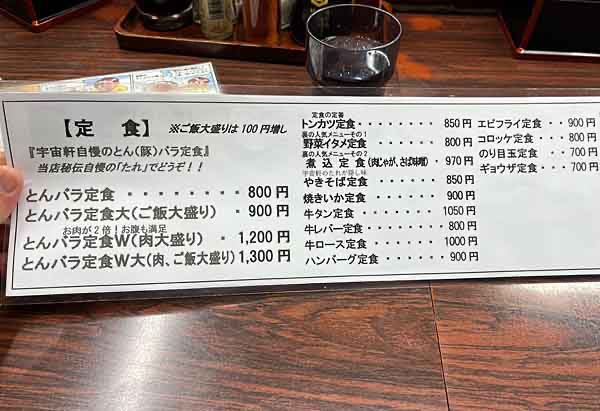 【定 食】 ※ご飯大盛りは100円増し
『宇宙軒自慢のとん(豚)バラ定食』
当店秘伝自慢の「たれ」でどうぞ！！
とんバラ定食 ・・・・・・・・ 800円
とんバラ定食大(ご飯大盛り) ・ 900円
お肉が2倍！お腹も満足
とんバラ定食W(肉大盛り) ・ 1,200円
とんバラ定食W大(肉、ご飯大盛り) 1,300円
定食の定番
トンカツ定食・・・・・・・・ 850円
裏の人気メニューその1
野菜イタメ定食・・・・・・・ 800円
裏の人気メニューその2
煮込定食(肉じゃが、さば味噌)・ 970円
宇宙軒のたれが隠し味
やきそば定食・・・・・・ 850円
焼きいか定食・・・・・・ 900円
牛タン定食・・・・・・・ 1050円
牛レバー定食・・・・・・ 800円
牛ロース定食・・・・・・ 1000円
ハンバーグ定食・・・・・・ 900円
エビフライ定食・・900円
コロッケ定食・・・800円
のり目玉定食・・・700円
ギョウザ定食・・・700円